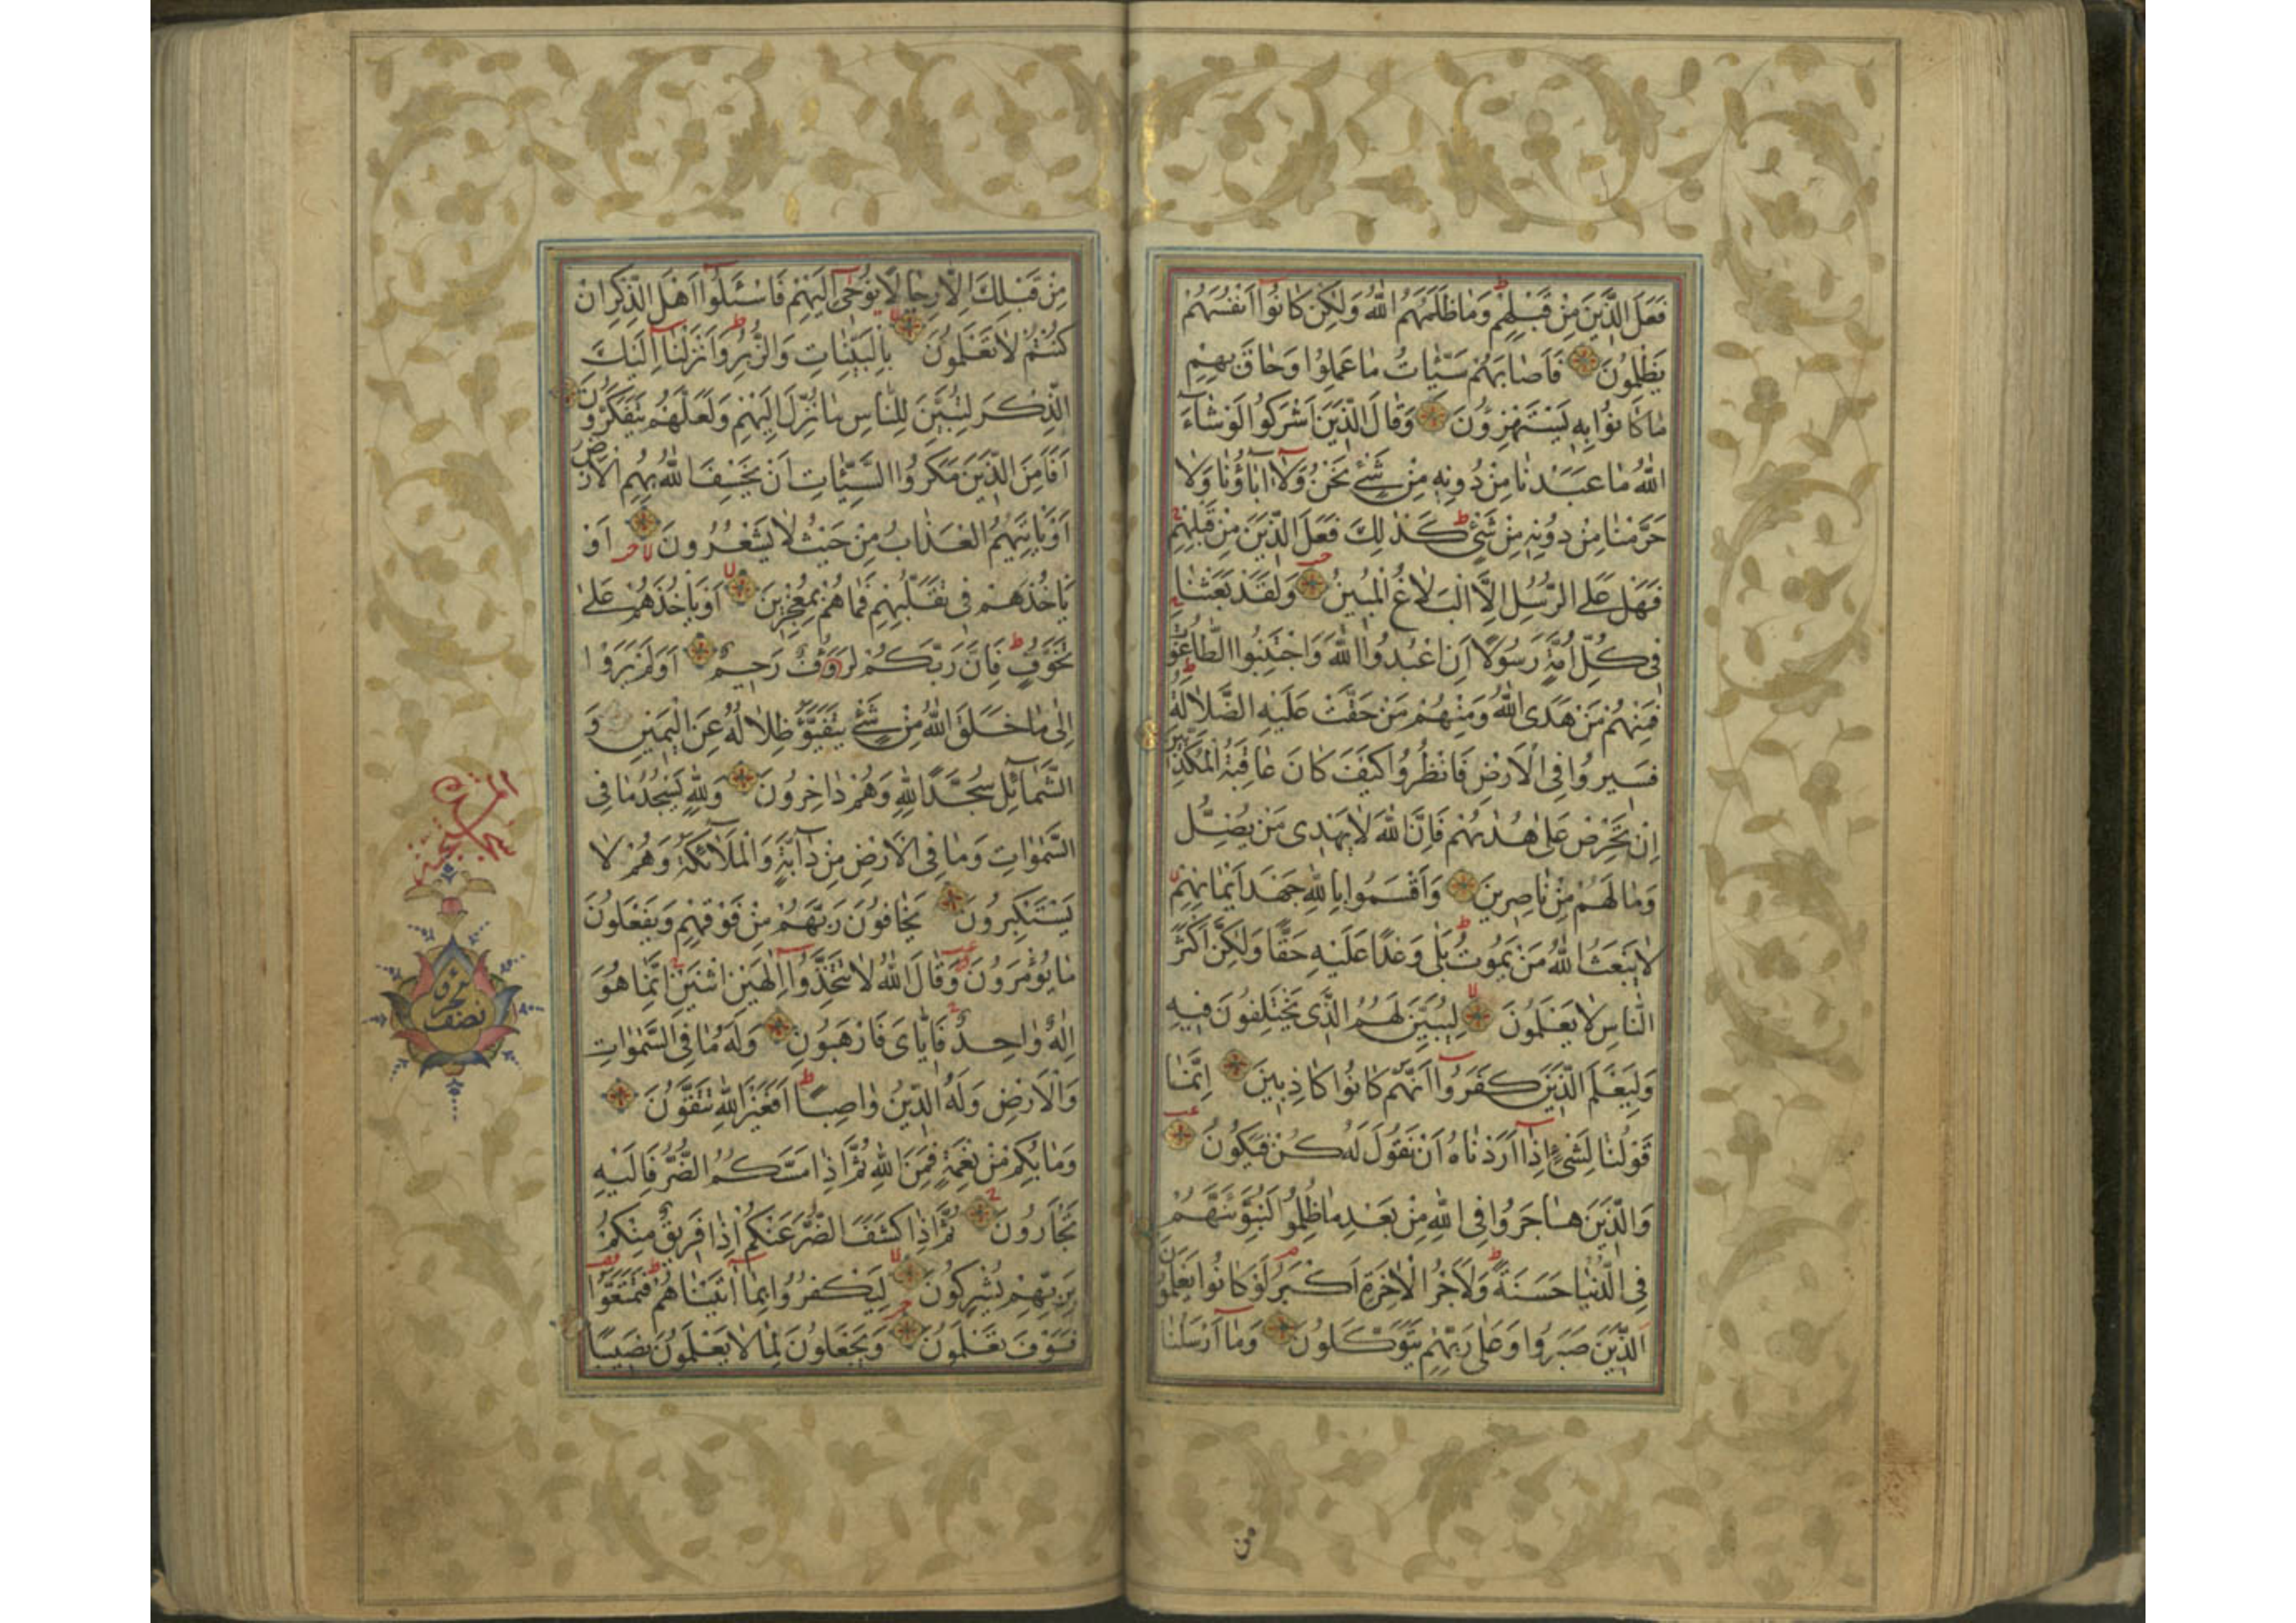 فَعَلَ الَّذِينَ مِنْ قَبْلِهِمْ وَمَا ظَلَمَهُمُ اللّٰهُ وَلٰكِنْ كَانُوا اَنْفُسَهُمْ
يَظْلِمُونَ فَاَصَابَهُمْ سَيِّئَاتُ مَا عَمِلُوا وَحَاقَ بِهِمْ
مَا كَانُوا بِهِ يَسْتَهْزِؤُنَ وَقَالَ الَّذِينَ اَشْرَكُوا لَوْ شَاءَ
اللّٰهُ مَا عَبَدْنَا مِنْ دُونِهِ مِنْ شَيْءٍ نَحْنُ وَلَا اٰبَاؤُنَا وَلَا
حَرَّمْنَا مِنْ دُونِهِ مِنْ شَيْءٍ كَذٰلِكَ فَعَلَ الَّذِينَ مِنْ قَبْلِهِمْ
فَهَلْ عَلَى الرُّسُلِ اِلَّا الْبَلَاغُ الْمُبِينُ وَلَقَدْ بَعَثْنَا
فِي كُلِّ اُمَّةٍ رَسُولًا اَنِ اعْبُدُوا اللّٰهَ وَاجْتَنِبُوا الطَّاغُوتَ
فَمِنْهُمْ مَنْ هَدَى اللّٰهُ وَمِنْهُمْ مَنْ حَقَّتْ عَلَيْهِ الضَّلَالَةُ
فَسِيرُوا فِي الْاَرْضِ فَانْظُرُوا كَيْفَ كَانَ عَاقِبَةُ الْمُكَذِّبِينَ
اِنْ تَحْرِصْ عَلٰى هُدٰيهُمْ فَاِنَّ اللّٰهَ لَا يَهْدِي مَنْ يُضِلُّ
وَمَا لَهُمْ مِنْ نَاصِرِينَ وَاَقْسَمُوا بِاللّٰهِ جَهْدَ اَيْمَانِهِمْ
لَا يَبْعَثُ اللّٰهُ مَنْ يَمُوتُ بَلٰى وَعْدًا عَلَيْهِ حَقًّا وَلٰكِنَّ اَكْثَرَ
النَّاسِ لَا يَعْلَمُونَ لِيُبَيِّنَ لَهُمُ الَّذِي يَخْتَلِفُونَ فِيهِ
وَلِيَعْلَمَ الَّذِينَ كَفَرُوا اَنَّهُمْ كَانُوا كَاذِبِينَ اِنَّمَا
قَوْلُنَا لِشَيْءٍ اِذَا اَرَدْنَاهُ اَنْ نَقُولَ لَهُ كُنْ فَيَكُونُ
وَالَّذِينَ هَاجَرُوا فِي اللّٰهِ مِنْ بَعْدِ مَا ظُلِمُوا لَنُبَوِّئَنَّهُمْ
فِي الدُّنْيَا حَسَنَةً وَلَاَجْرُ الْاٰخِرَةِ اَكْبَرُ لَوْ كَانُوا يَعْلَمُونَ
الَّذِينَ صَبَرُوا وَعَلٰى رَبِّهِمْ يَتَوَكَّلُونَ وَمَا اَرْسَلْنَا
من
مِنْ قَبْلِكَ اِلَّا رِجَالًا نُوحِي اِلَيْهِمْ فَاسْئَلُوا اَهْلَ الذِّكْرِ اِنْ
كُنْتُمْ لَا تَعْلَمُونَ بِالْبَيِّنَاتِ وَالزُّبُرِ وَاَنْزَلْنَا اِلَيْكَ
الذِّكْرَ لِتُبَيِّنَ لِلنَّاسِ مَا نُزِّلَ اِلَيْهِمْ وَلَعَلَّهُمْ يَتَفَكَّرُونَ
اَفَاَمِنَ الَّذِينَ مَكَرُوا السَّيِّئَاتِ اَنْ يَخْسِفَ اللّٰهُ بِهِمُ الْاَرْضَ
اَوْ يَاْتِيَهُمُ الْعَذَابُ مِنْ حَيْثُ لَا يَشْعُرُونَ اَوْ
يَاْخُذَهُمْ فِي تَقَلُّبِهِمْ فَمَا هُمْ بِمُعْجِزِينَ اَوْ يَاْخُذَهُمْ عَلٰى
تَخَوُّفٍ فَاِنَّ رَبَّكُمْ لَرَؤُفٌ رَحِيمٌ اَوَلَمْ يَرَوْا
اِلٰى مَا خَلَقَ اللّٰهُ مِنْ شَيْءٍ يَتَفَيَّؤُ ظِلَالُهُ عَنِ الْيَمِينِ وَ
الشَّمَائِلِ سُجَّدًا لِلّٰهِ وَهُمْ دَاخِرُونَ وَلِلّٰهِ يَسْجُدُ مَا فِي
السَّمٰوَاتِ وَمَا فِي الْاَرْضِ مِنْ دَابَّةٍ وَالْمَلَائِكَةُ وَهُمْ لَا
يَسْتَكْبِرُونَ يَخَافُونَ رَبَّهُمْ مِنْ فَوْقِهِمْ وَيَفْعَلُونَ
مَا يُؤْمَرُونَ وَقَالَ اللّٰهُ لَا تَتَّخِذُوا اِلٰهَيْنِ اثْنَيْنِ اِنَّمَا هُوَ
اِلٰهٌ وَاحِدٌ فَاِيَّايَ فَارْهَبُونِ وَلَهُ مَا فِي السَّمٰوَاتِ
وَالْاَرْضِ وَلَهُ الدِّينُ وَاصِبًا اَفَغَيْرَ اللّٰهِ تَتَّقُونَ
وَمَا بِكُمْ مِنْ نِعْمَةٍ فَمِنَ اللّٰهِ ثُمَّ اِذَا مَسَّكُمُ الضُّرُّ فَاِلَيْهِ
تَجْاَرُونَ ثُمَّ اِذَا كَشَفَ الضُّرَّ عَنْكُمْ اِذَا فَرِيقٌ مِنْكُمْ
بِرَبِّهِمْ يُشْرِكُونَ لِيَكْفُرُوا بِمَا اٰتَيْنَاهُمْ فَتَمَتَّعُوا
فَسَوْفَ تَعْلَمُونَ وَيَجْعَلُونَ لِمَا لَا يَعْلَمُونَ نَصِيبًا
نصف